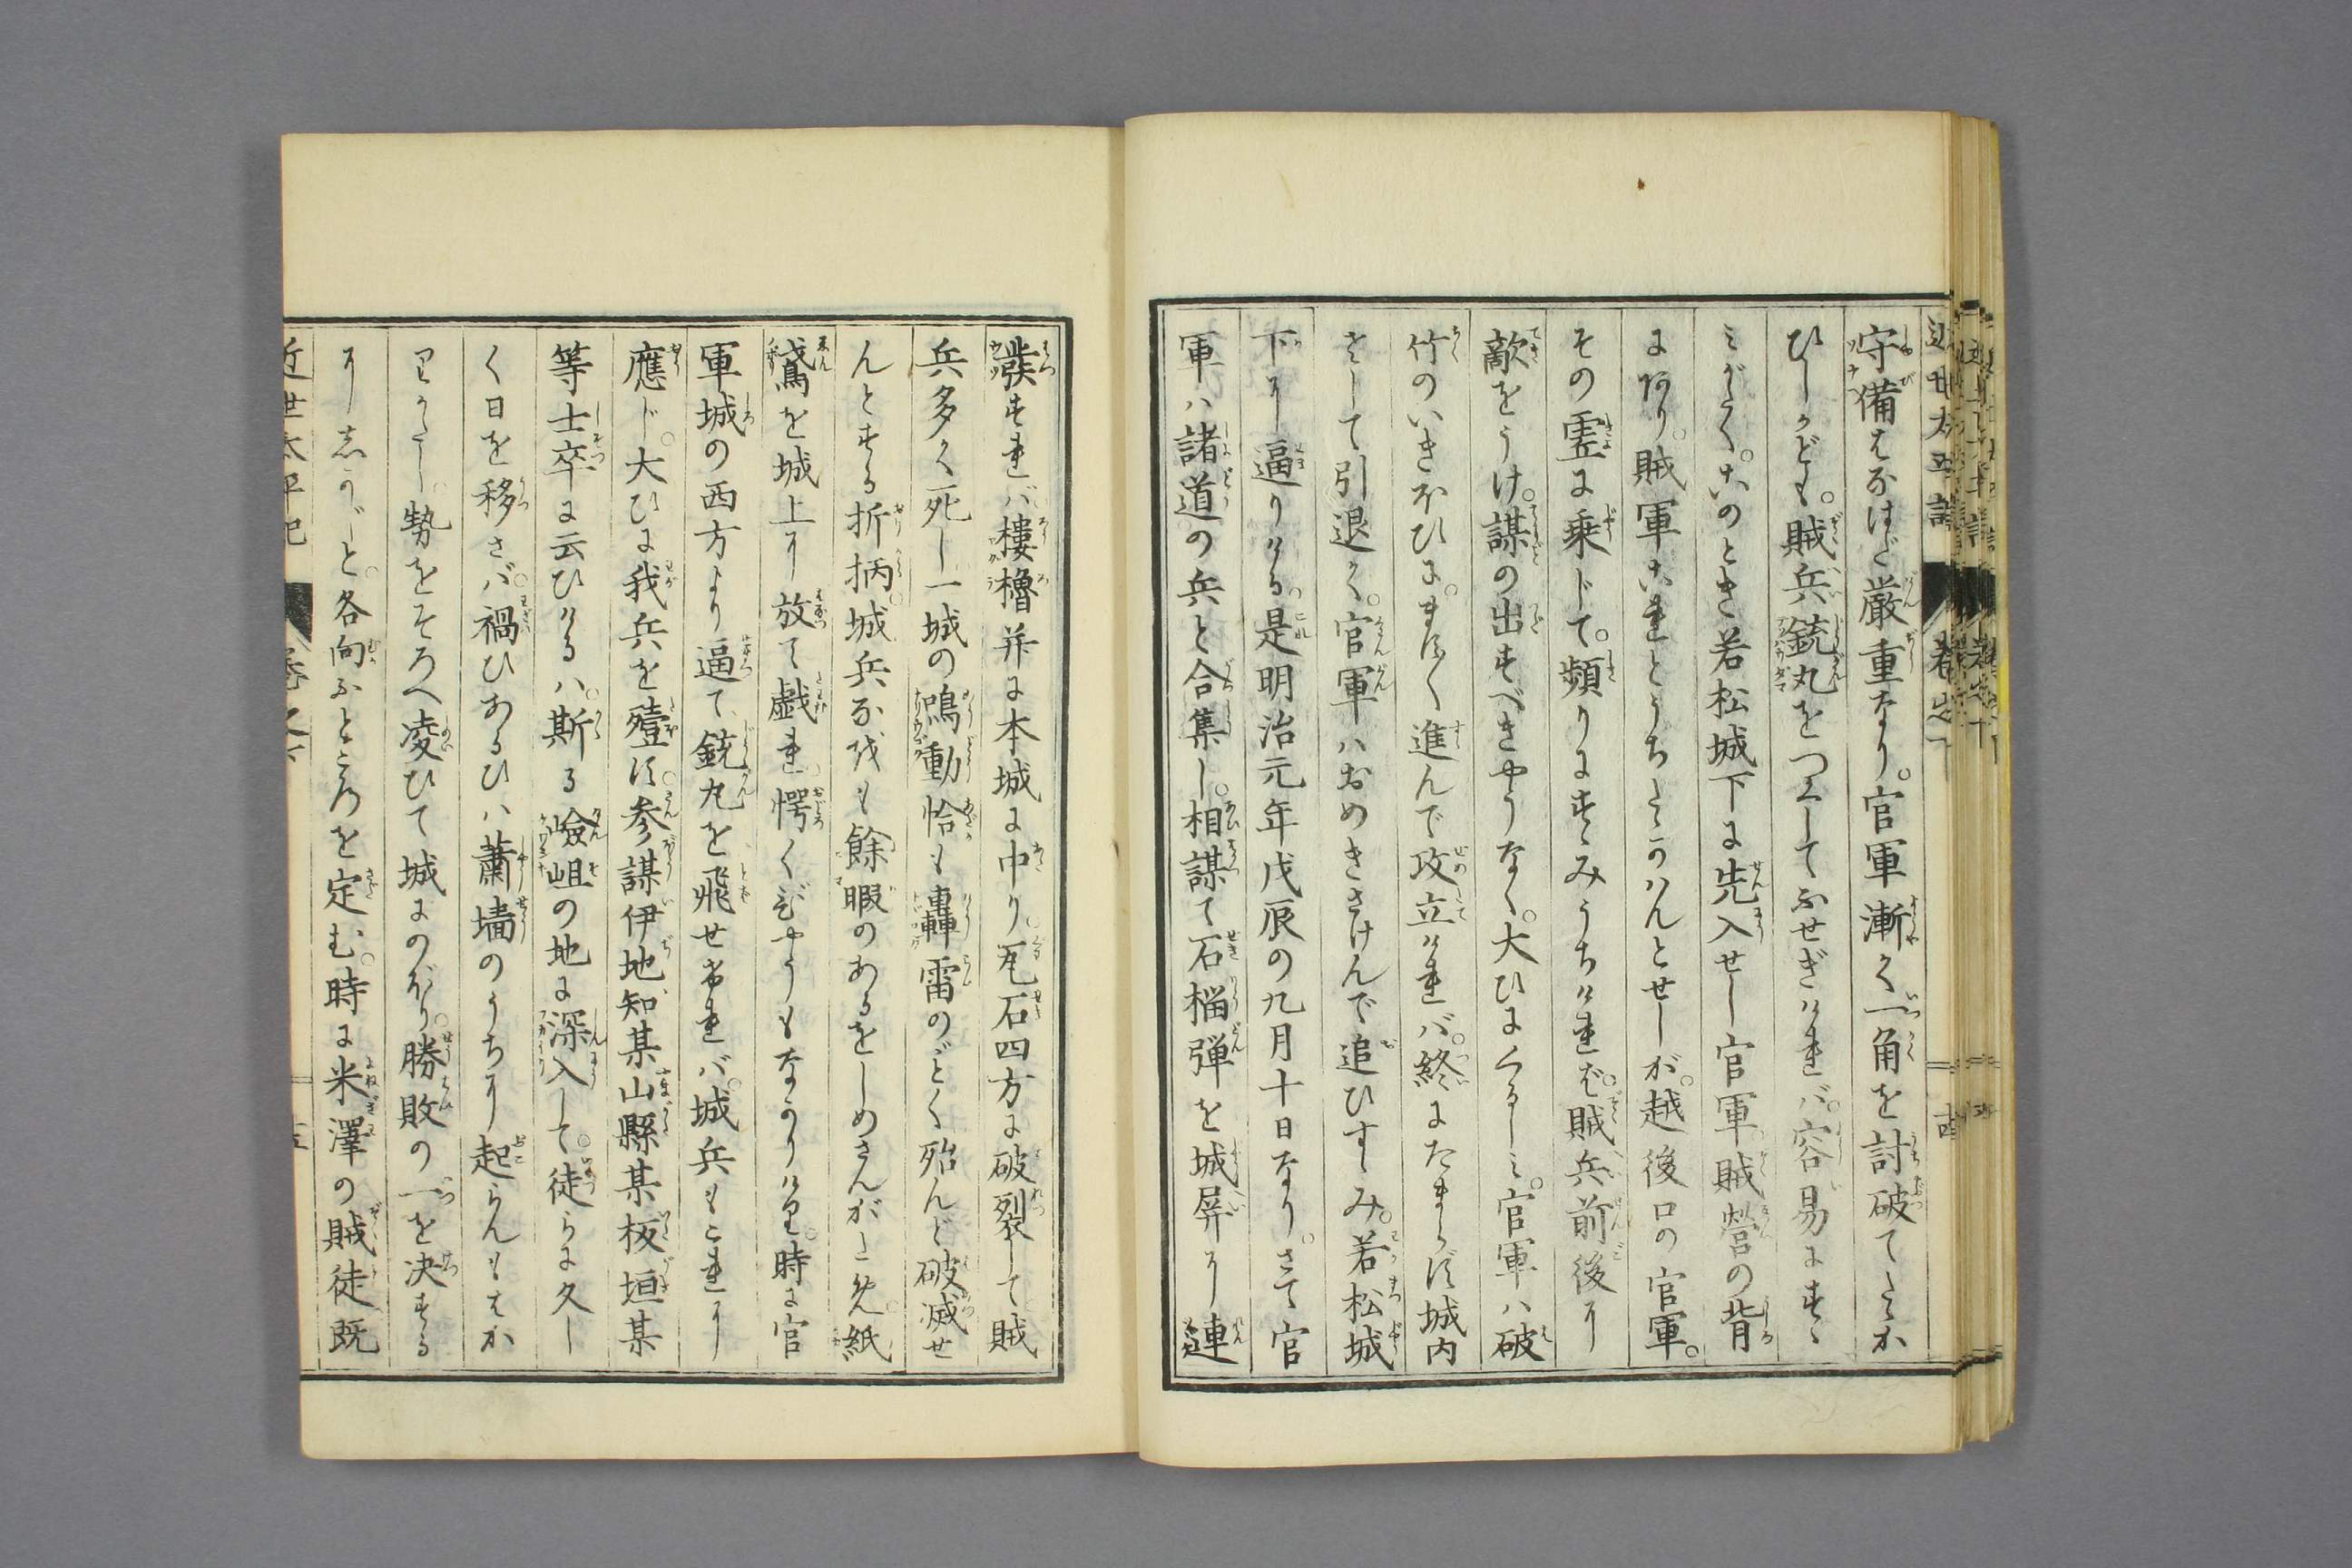 守備はなはだ厳重なり。官軍漸く一角を討破てたゝか
ひしかども。賊兵銃丸をつくしてふせぎければ。容易にすゝ
みがたく。此のとき若松城下に先入せし官軍。賊営の背
にあり。賊軍これとうちたゝかはんとせしが。越後口の官軍。
その虚に乗じて。頻りにすゝみうちければ。賊兵前後に
敵をうけ。謀の出すべきやうなく。大ひにくるしみ。官軍ハ破
竹のいきほひに。ます〳〵進んで攻立ければ。終にたまらず城内
さして引退く。官軍ハおめきさけんで追ひすゝみ。若松城
下に逼りける。是明治元年戊辰の九月十日なり。さて官
軍ハ諸道の兵と合集し。相謀て石榴弾を城屏に連
発すれば樓櫓并に本城に中り。瓦石四方に破裂して賊
兵多く死し一城の鳴動恰も轟雷のごとく殆んど破滅せ
んとする折柄。城兵なほも餘暇のあるをしめさんがため。紙
鳶を城上に放て戯れ。愕くびやうもなかりけり。時に官
軍城の西方より逼て銃丸を飛せければ。城兵もこれに
應じ。大ひに我兵を殪す。参謀伊地知某山縣某板垣某
等士卒に云ひけるハ。斯る嶮岨の地に深入して。徒らに久し
く日を移さバ。禍ひあるひハ蕭墻のうちに起らんもはか
りがたし。勢をそろへ凌ひて城にのぼり。勝敗の一を決する
にしかじと。各向ふところを定む。時に米澤の賊徒既
近世太平記